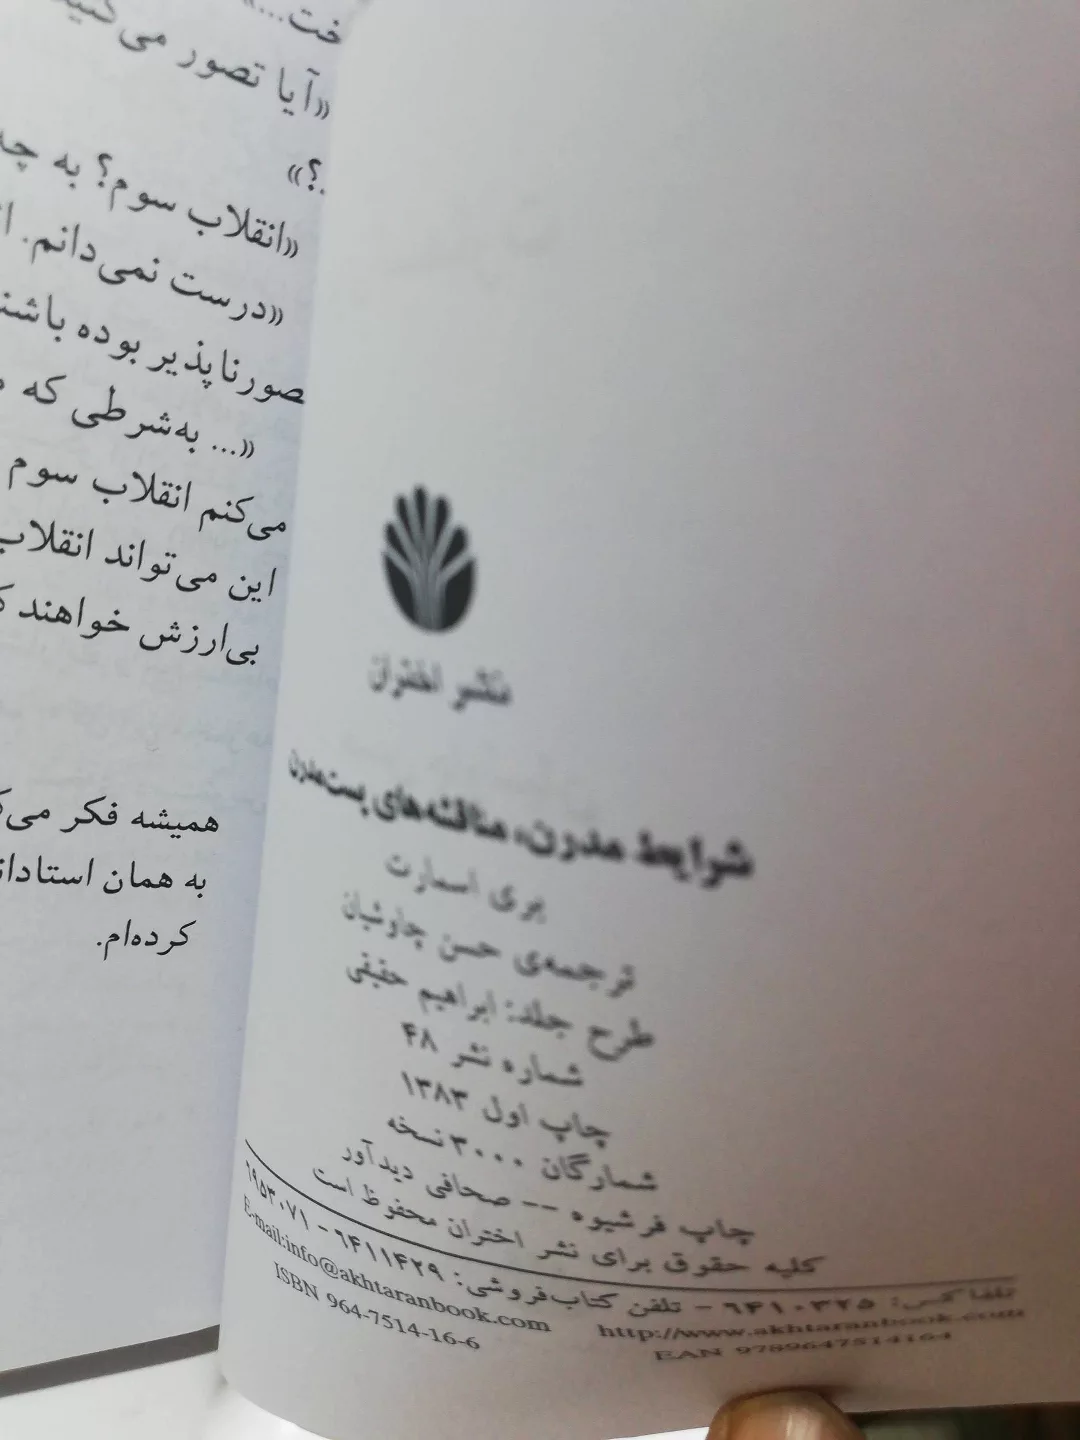 خت...»
«آیا تصور می‌کنید
؟»
«انقلاب سوم؟ به چه
«درست نمی‌دانم.
صورناپذیر بوده باشند
«... به‌شرطی که
می‌کنم انقلاب سوم
این می‌تواند انقلاب
بی‌ارزش خواهند
همیشه فکر می‌ک
به همان استادان
کرده‌ام.
نشر اختران
شرایط مدرن، مناقشه‌های پست‌مدرن
بری اسمارت
ترجمه‌ی حسن چاوشیان
طرح جلد: ابراهیم حقیقی
شماره نشر ۴۸
چاپ اول ۱۳۸۳
شمارگان ۳۰۰۰ نسخه
چاپ فرشیوه -- صحافی دیدآور
کلیه حقوق برای نشر اختران محفوظ است
تلفاکس: ۶۴۱۰۳۲۵ - تلفن کتاب‌فروشی: ۶۴۱۱۴۲۹ - ۶۹۵۳۰۷۱
E-mail:info@akhtaranbook.com http://www.akhtaranbook.com
ISBN 964-7514-16-6 EAN 9789647514164